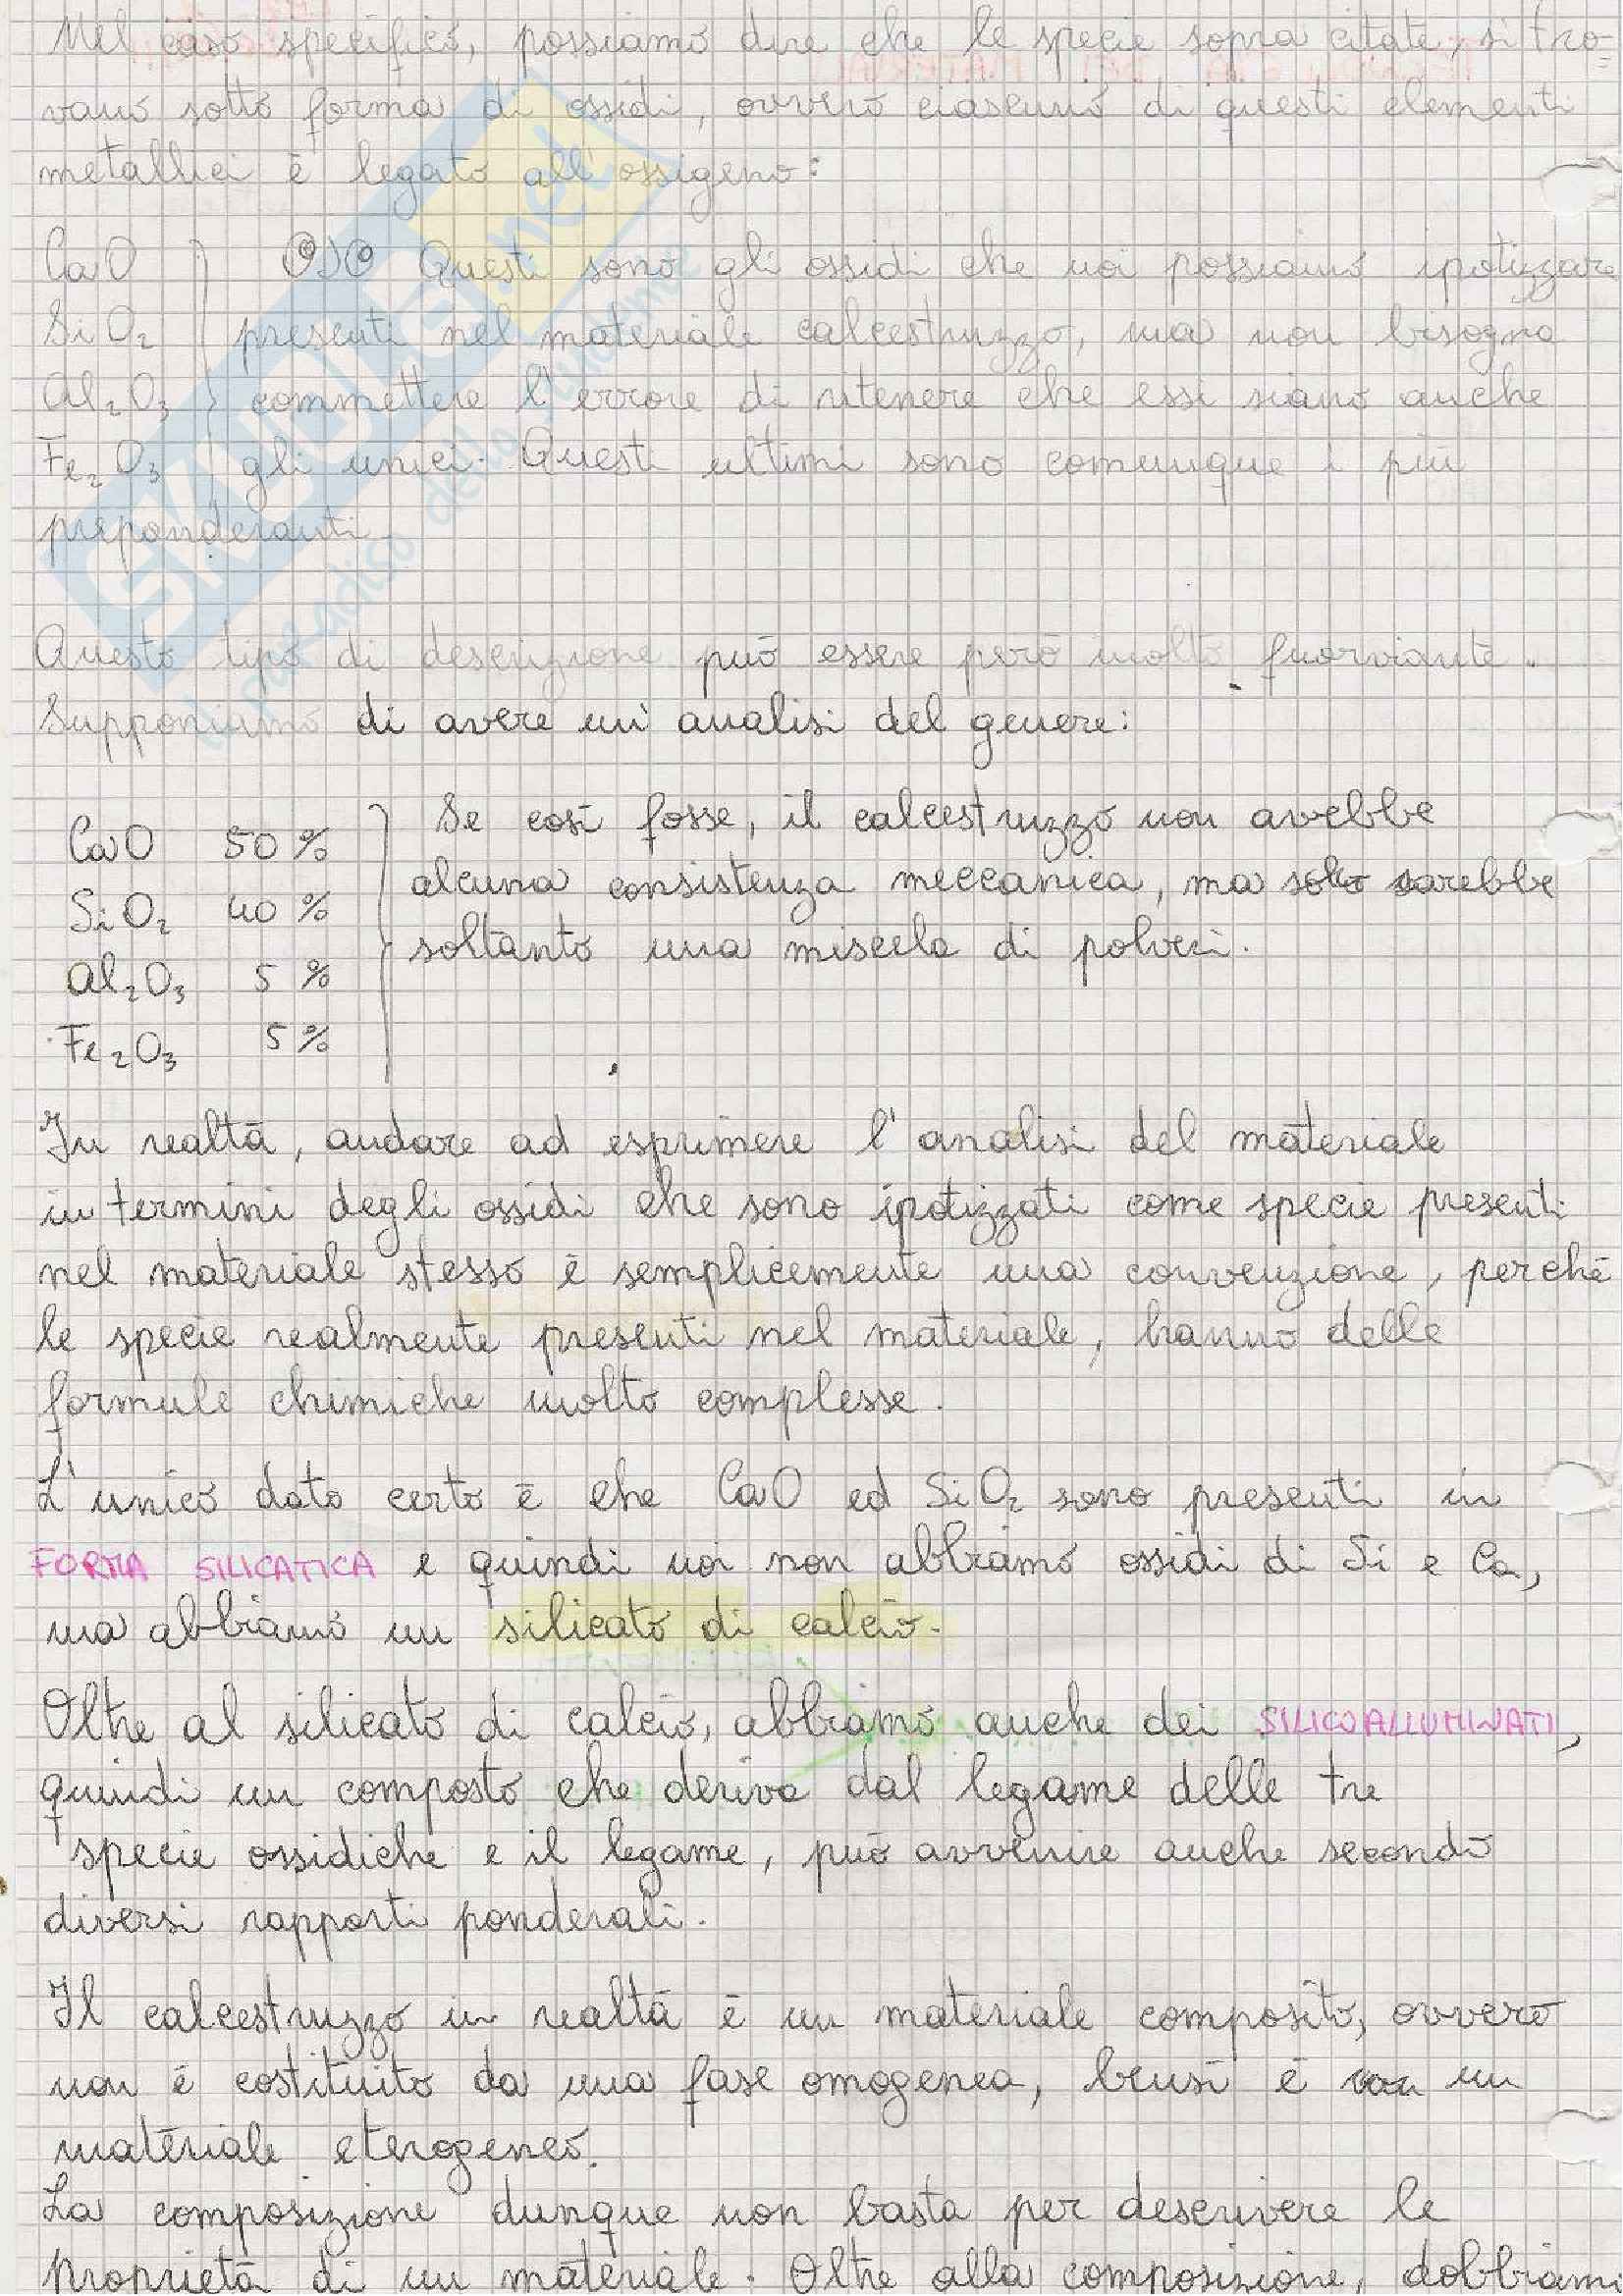 Nel caso specifico, possiamo dire che le specie sopra citate, si tro-
vano sotto forma di ossidi, ovvero ciascuno di questi elementi
metallici è legato all'ossigeno:
CaO
Questi sono gli ossidi che noi possiamo ipotizzare
SiO₂ presenti nel materiale calcestruzzo, ma non bisogna
Al₂O₃ commettere l'errore di ritenere che essi siano anche
Fe₂O₃ gli unici. Questi ultimi sono comunque i più
preponderanti.
Questo tipo di descrizione può essere però molto fuorviante.
Supponiamo di avere un'analisi del genere:
CaO 50%
SiO₂ 40%
Al₂O₃ 5%
Fe₂O₃ 5%
Se così fosse, il calcestruzzo non avrebbe
alcuna consistenza meccanica, ma solo sarebbe
soltanto una miscela di polveri.
In realtà, andare ad esprimere l'analisi del materiale
in termini degli ossidi che sono ipotizzati come specie presenti
nel materiale stesso è semplicemente una convenzione, perchè
le specie realmente presenti nel materiale, hanno delle
formule chimiche molto complesse.
L'unico dato certo è che CaO ed SiO₂ sono presenti in
FORMA SILICATICA e quindi noi non abbiamo ossidi di Si e Ca,
ma abbiamo un silicato di calcio.
Oltre al silicato di calcio, abbiamo anche dei SILICOALLUMINATI,
quindi un composto che deriva dal legame delle tre
specie ossidiche e il legame, può avvenire anche secondo
diversi rapporti ponderali.
Il calcestruzzo in realtà è un materiale composito, ovvero
non è costituito da una fase omogenea, bensì è un
materiale eterogeneo.
La composizione dunque non basta per descrivere le
proprietà di un materiale. Oltre alla composizione, dobbiamo